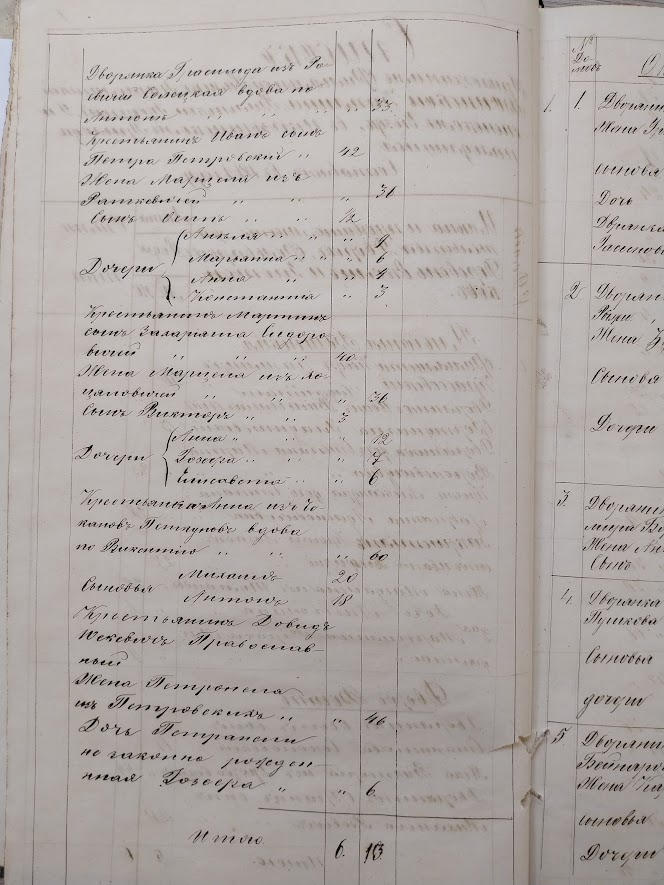 Дворянка Грасильда изъ Ра-
вичъ Селецкая вдова по
Антонъ " " " 33
Крестьянинъ Иванъ сынъ
Петра Петровский " 42
Жена Марцеля изъ
Раткевичей " " " 36
Сынъ Осипъ " " 12
Дочери Анеля " " " 9
Марьянна " " 6
Анна " " 4
Констанція " 3
Крестьянинъ Мартинъ
сынъ Захаріяша Сидоро-
вичей " " " 40
Жена Марцеля изъ
цановичей " " " 36
Сынъ Викторъ " " 3
Дочери Анна " " " 12
Юзефа " " " 7
Елисавета " " 6
Крестьянка Анна изъ
Петкунъ вдова
по Викентію " " " 60
Сыновья Михаилъ 20
Антонъ 18
Крестьянинъ Довидъ
Православ-
ный
Жена Петронеля
изъ Петровскихъ " " 46
Дочь Петранели
не законно рожден-
нная Юзефа " " 6
Итого 6. 13.
№
До-
мовъ
1. 1. Дворянин
Жена
сыновья
Дочь
2 Дворянин
Жена
Сыновья
Дочери
3. Дворянин
Жена Ан
Сынъ
4. Дворянка
Пушкова
Сыновья
дочери
5. Дворянин
Жена Ка
сыновья
Дочери